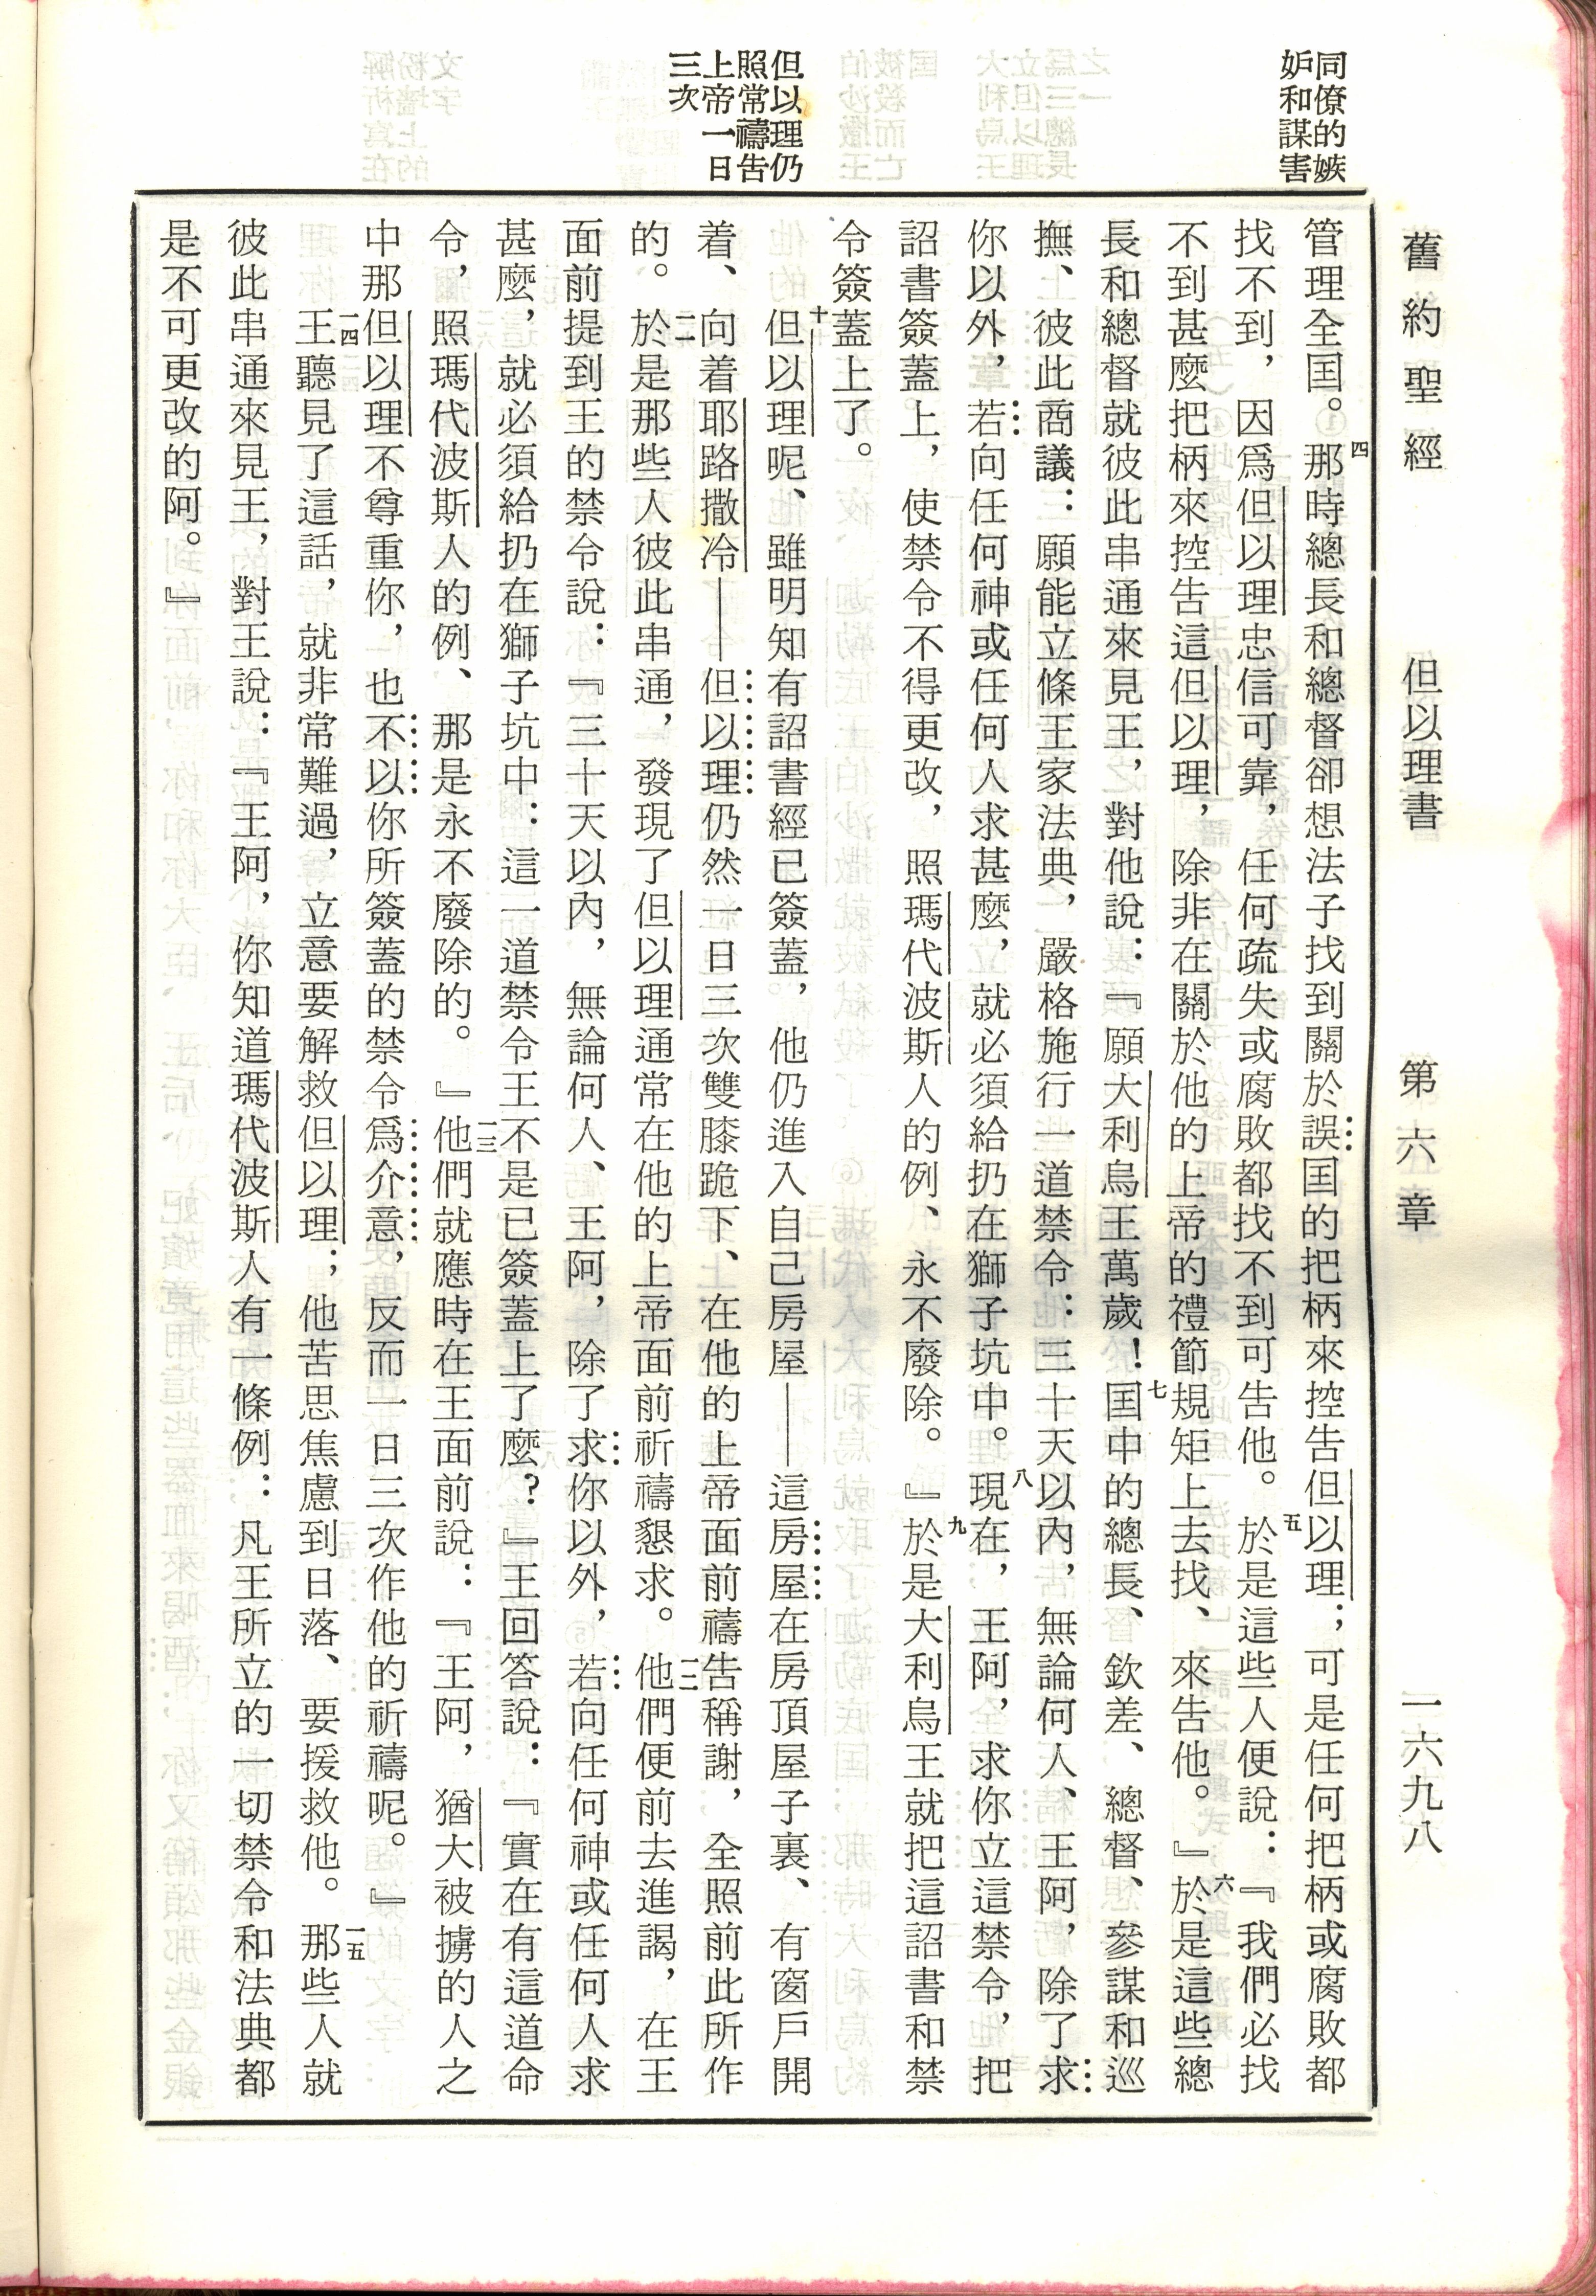 舊約聖經　但以理書　第六章　一六九八
同僚的嫉
妒和謀害
但以理仍
照常禱告
上帝一日
三次
管理全国。四那時總長和總督卻想法子找到關於誤国的把柄來控告但以理；可是任何把柄或腐敗都
找不到，因爲但以理忠信可靠，任何疏失或腐敗都找不到可告他。五於是這些人便說：『我們必找
不到甚麼把柄來控告這但以理，除非在關於他的上帝的禮節規矩上去找、來告他。』六於是這些總
長和總督就彼此串通來見王，對他說：『願大利烏王萬歲！七国中的總長、欽差、總督、參謀和巡
撫、彼此商議：願能立條王家法典，嚴格施行一道禁令：三十天以內，無論何人、王阿，除了求
你以外，若向任何神或任何人求甚麼，就必須給扔在獅子坑中。八現在，王阿，求你立這禁令，把
詔書簽蓋上，使禁令不得更改，照瑪代波斯人的例、永不廢除。』九於是大利烏王就把這詔書和禁
令簽蓋上了。
十但以理呢、雖明知有詔書經已簽蓋，他仍進入自己房屋——這房屋在房頂屋子裏、有窗戶開
着、向着耶路撒冷——但以理仍然一日三次雙膝跪下、在他的上帝面前禱告稱謝，全照前此所作
的。一一於是那些人彼此串通，發現了但以理通常在他的上帝面前祈禱懇求。一二他們便前去進謁，在王
面前提到王的禁令說：『三十天以內，無論何人、王阿，除了求你以外，若向任何神或任何人求
甚麼，就必須給扔在獅子坑中：這一道禁令王不是已簽蓋上了麼？』王回答說：『實在有這道命
令，照瑪代波斯人的例、那是永不廢除的。』一三他們就應時在王面前說：『王阿，猶大被擄的人之
中那但以理不尊重你，也不以你所簽蓋的禁令爲介意，反而一日三次作他的祈禱呢。』
一四王聽見了這話，就非常難過，立意要解救但以理；他苦思焦慮到日落、要援救他。一五那些人就
彼此串通來見王，對王說：『王阿，你知道瑪代波斯人有一條例：凡王所立的一切禁令和法典都
是不可更改的阿。』